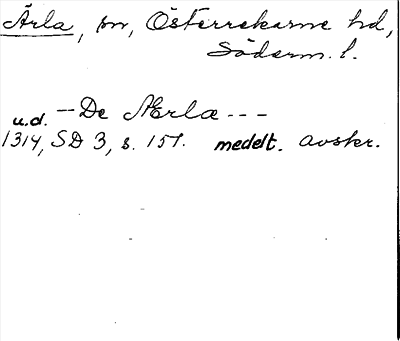 Ärla, sn, Österrekarne hd,
Söderm. l.
u.d. — De Ærla - - -
1314, SD 3, s. 151. medelt. avskr.